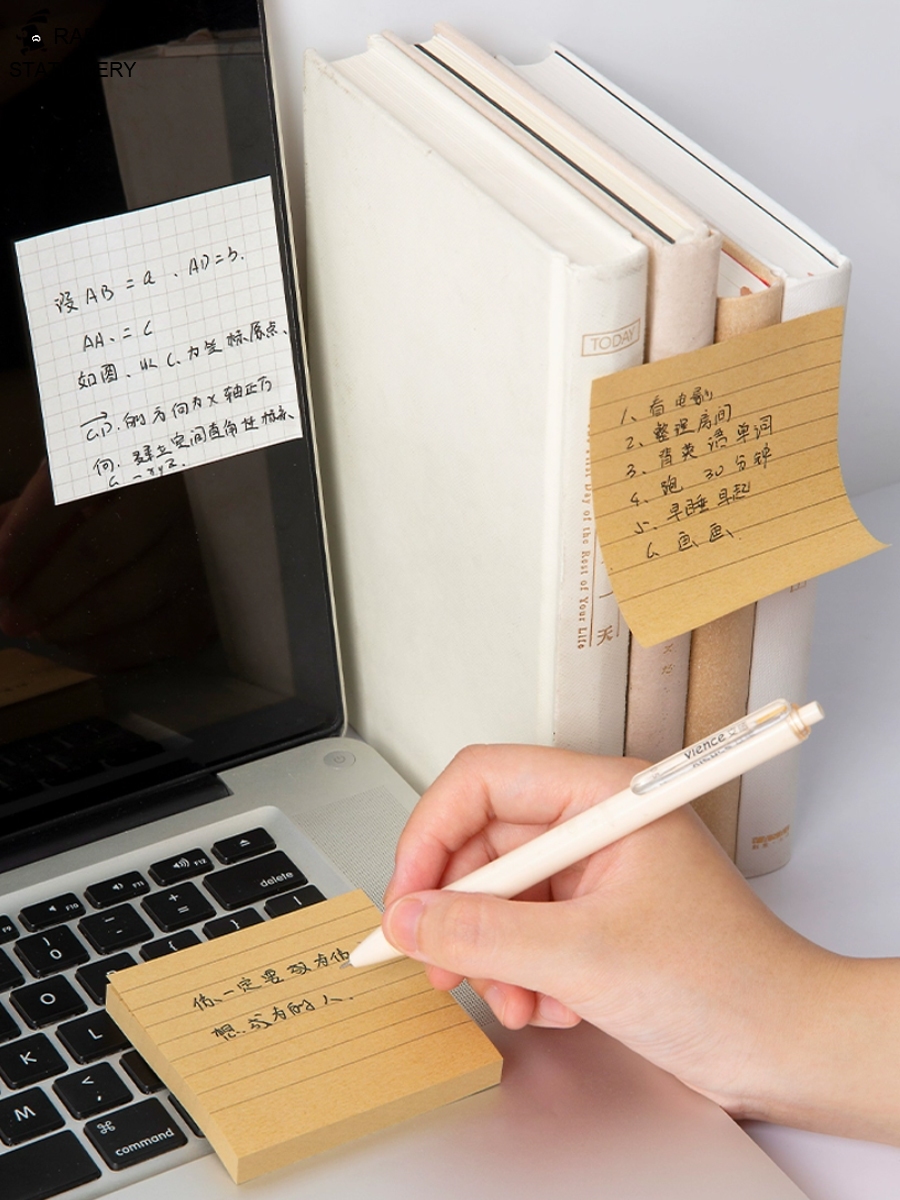 STATIONERY
设 AB = a 、AD = b.
AA、= C
如图、以 C、为坐标原点、
C、D、的方向为 x 轴正方
向、建立空间直角坐标系
C - xyz.
TODAY
First Day of the Rest of Your Life
一
天
1、看电影
2、整理房间
3、背英语单词
4、跑 30 分钟
5、早睡早起
6 画画、
你、一定要成为你
想、成为的人.
vience
F9
F10
F11
F12
delete
O
K
L
M
command